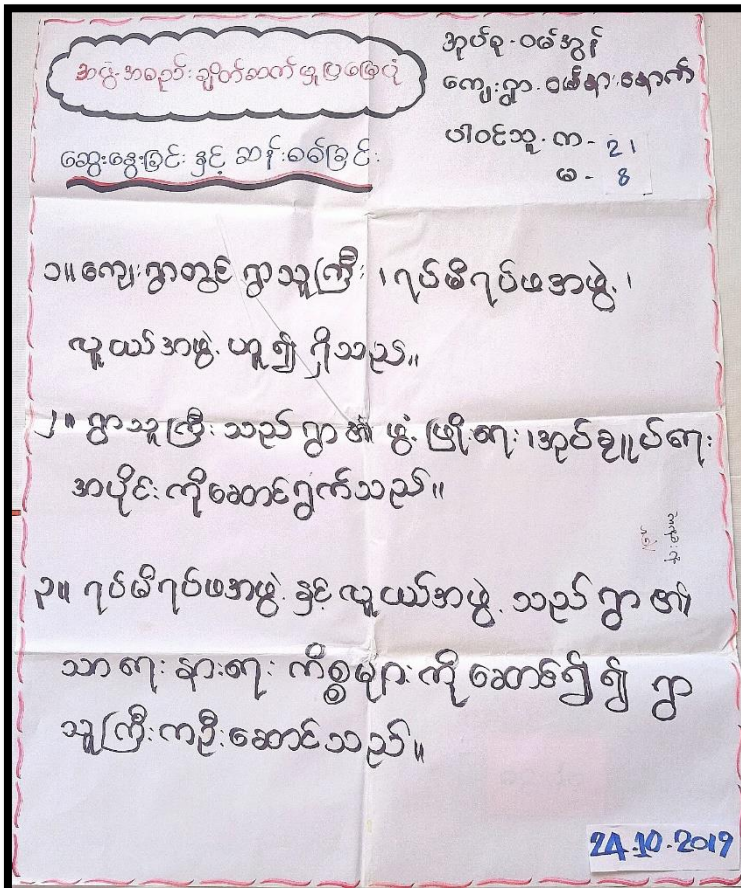 အဖွဲ့အစည်းချိတ်ဆက်မှုပြမြေပုံ
အုပ်စု - ဝမ်အွန်
ကျေးရွာ - ဝမ်နားနောက်
ပါဝင်သူ - ကျ - 21
မ - 8
ဆွေးနွေးခြင်း နှင့် ဆန်းစစ်ခြင်း
၁။ ကျေးရွာတွင် ရွာသူကြီး ၊ ရပ်မိရပ်ဖအဖွဲ့ ၊
လူငယ်အဖွဲ့ ဟူ၍ ရှိသည်။
၂။ ရွာသူကြီး သည် ရွာ၏ ဖွံ့ဖြိုးရေး ၊ အုပ်ချုပ်ရေး
အပိုင်းကိုဆောင်ရွက်သည်။
၃။ ရပ်မိရပ်ဖအဖွဲ့ နှင့် လူငယ်အဖွဲ့ သည် ရွာ၏
သာရေး နာရေး ကိစ္စများကို ဆောင်ရွက်၍ ရွာ
သူကြီးကဦးဆောင်သည်။
24.10.2019